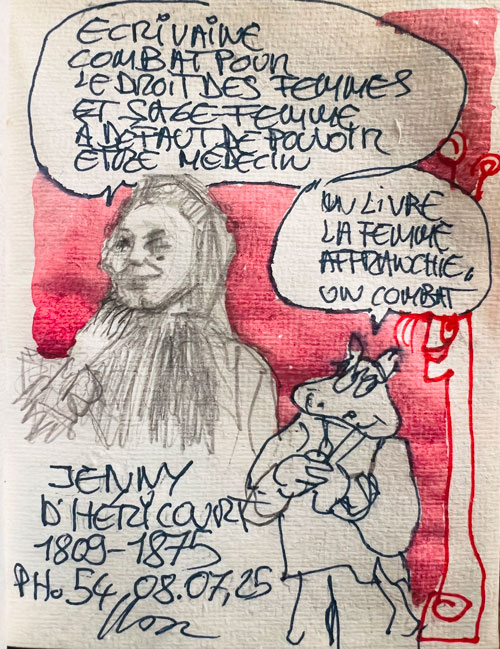 ECRIVAINE
COMBAT POUR
LE DROIT DES FEMMES
ET SAGE-FEMME
A DEFAUT DE POUVOIR
ETRE MEDECIN
UN LIVRE
LA FEMME
AFFRANCHIE,
UN COMBAT
JENNY
D'HERICOURT
1809-1875
PH. 54, 08.07,25